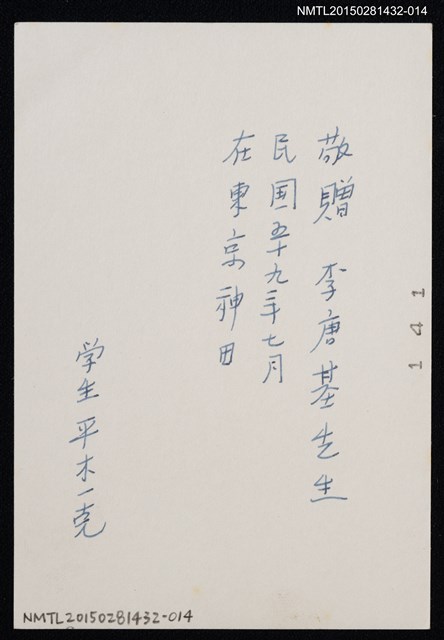 NMTL20150281432-014
敬贈 李唐基先生
民国五十九年七月
在東京神田
学生 平木一克
141
NMTL20150281432-014